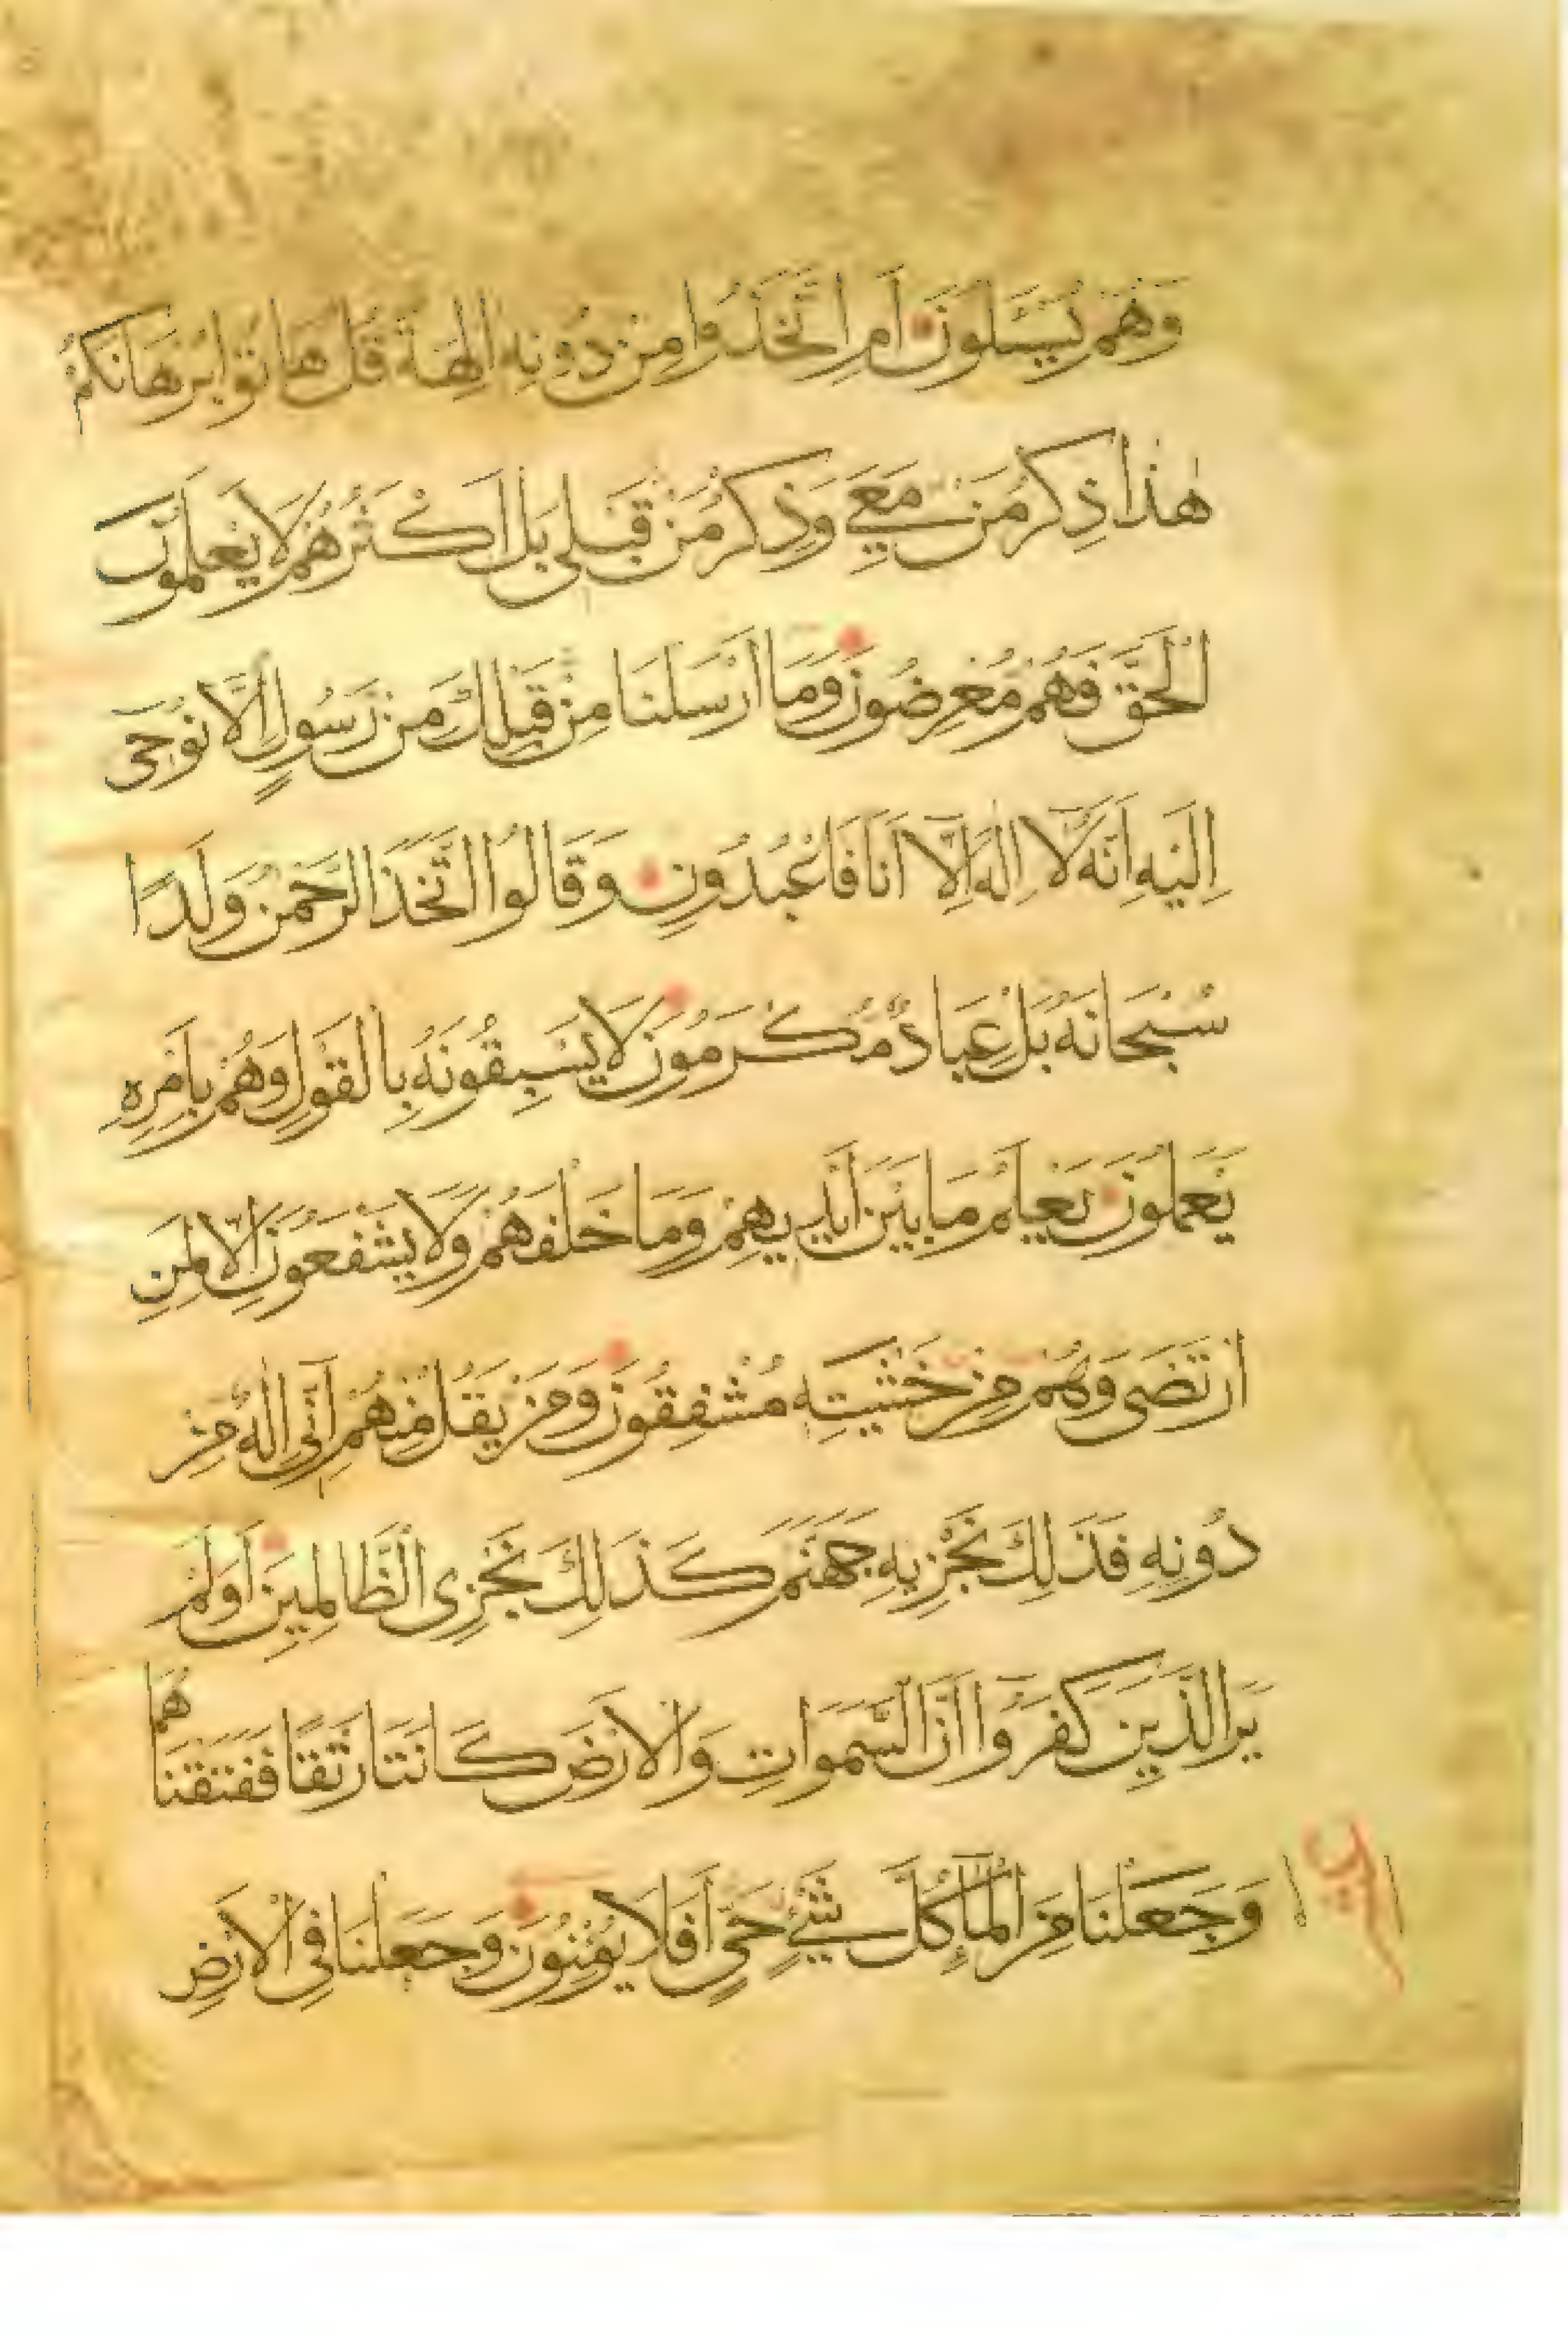 وَهُمْ يُسْـَٔلُونَ اَمِ اتَّخَذُوا مِنْ دُونِهِ اٰلِهَةً قُلْ هَاتُوا بُرْهَانَكُمْ
هٰذَا ذِكْرُ مَنْ مَعِيَ وَذِكْرُ مَنْ قَبْلِي بَلْ اَكْثَرُهُمْ لَا يَعْلَمُونَ
الْحَقَّ فَهُمْ مُعْرِضُونَ وَمَا اَرْسَلْنَا مِنْ قَبْلِكَ مِنْ رَسُولٍ اِلَّا نُوحِى
اِلَيْهِ اَنَّهُ لَا اِلٰهَ اِلَّا اَنَا فَاعْبُدُونِ وَقَالُوا اتَّخَذَ الرَّحْمٰنُ وَلَدًا
سُبْحَانَهُ بَلْ عِبَادٌ مُكْرَمُونَ لَا يَسْبِقُونَهُ بِالْقَوْلِ وَهُمْ بِاَمْرِهِ
يَعْمَلُونَ يَعْلَمُ مَا بَيْنَ اَيْدِيهِمْ وَمَا خَلْفَهُمْ وَلَا يَشْفَعُونَ اِلَّا لِمَنِ
ارْتَضَى وَهُمْ مِنْ خَشْيَتِهِ مُشْفِقُونَ وَمَنْ يَقُلْ مِنْهُمْ اِنِّى اِلٰهٌ مِنْ
دُونِهِ فَذٰلِكَ نَجْزِيهِ جَهَنَّمَ كَذٰلِكَ نَجْزِى الظَّالِمِينَ اَوَلَمْ
يَرَ الَّذِينَ كَفَرُوا اَنَّ السَّمَوَاتِ وَالْاَرْضَ كَانَتَا رَتْقًا فَفَتَقْنَاهُمَا
وَجَعَلْنَا مِنَ الْمَآءِ كُلَّ شَيْءٍ حَيٍّ اَفَلَا يُؤْمِنُونَ وَجَعَلْنَا فِى الْاَرْضِ